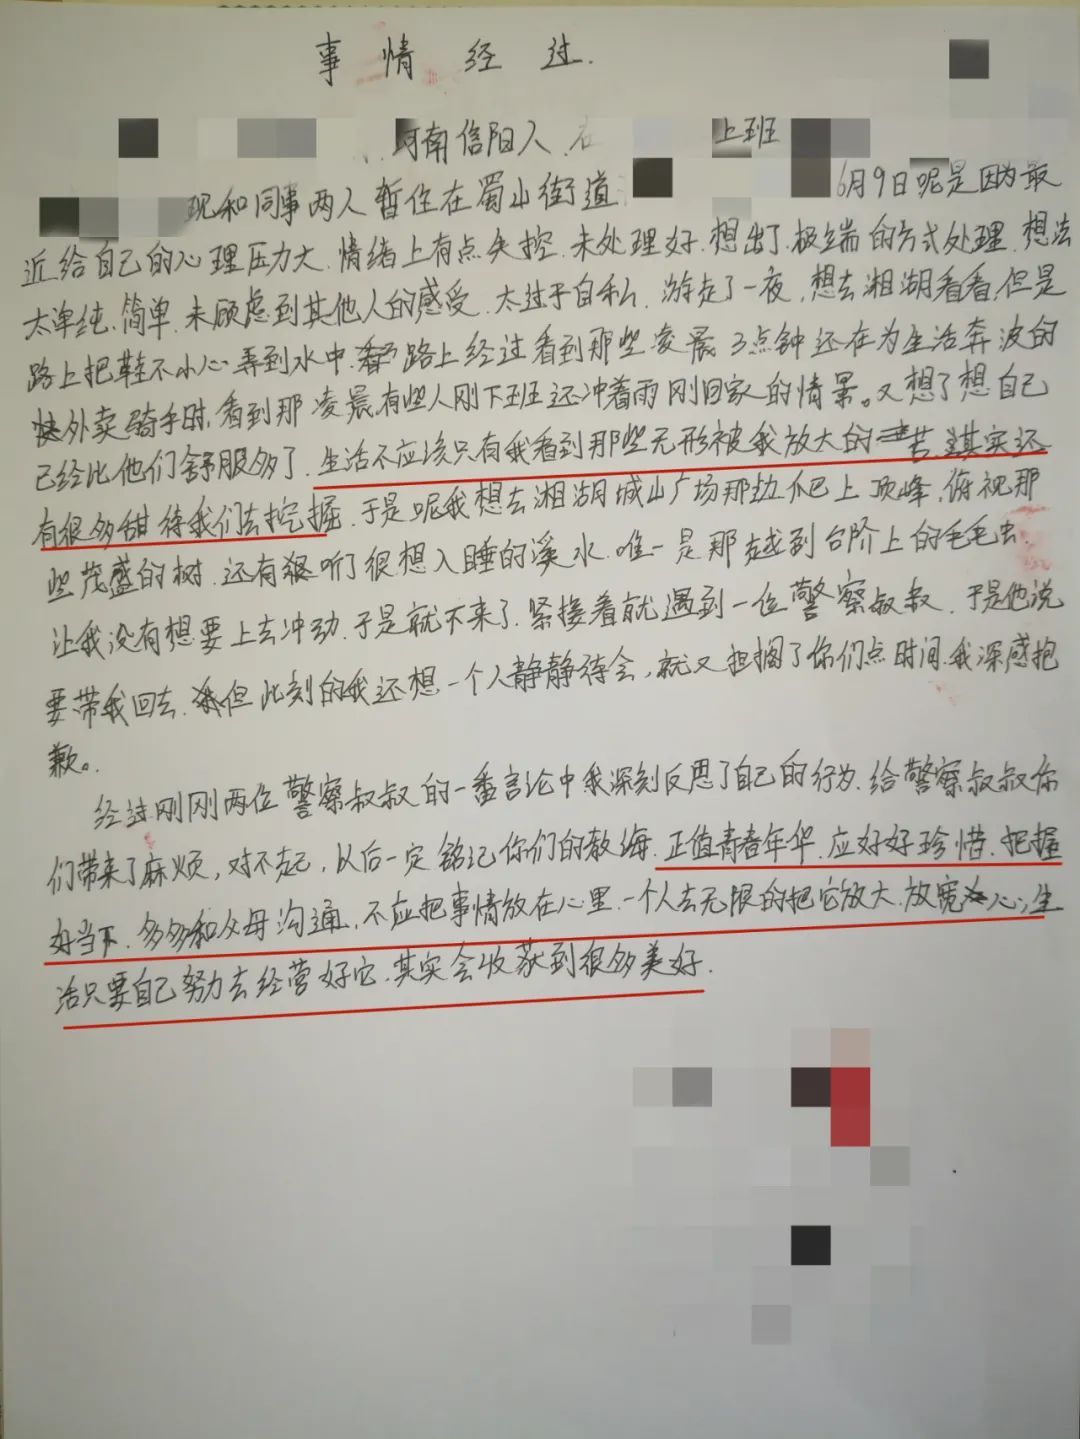 事情经过.
河南信阳人.在 上班
现和同事两人暂住在蜀山街道 6月9日呢是因为最
近给自己的心理压力大.情绪上有点失控.未处理好.想出了.极端的方式处理.想法
太单纯.简单.未顾虑到其他人的感受.太过于自私.游走了一夜,想去湘湖看看,但是
路上把鞋不小心弄到水中.路上经过看到那些凌晨3点钟还在为生活奔波的
外卖骑手时,看到那凌晨有些人刚下班还冲着雨刚回家的情景。又想了想自己
已经比他们舒服多了.生活不应该只有我看到那些无形被我放大的苦.其实还
有很多甜待我们去挖掘.于是呢我想去湘湖城山广场那边爬上顶峰,俯视那
些茂盛的树.还有听了很想入睡的溪水.唯一是那越到台阶上的毛毛虫.
让我没有想要上去冲动.于是就下来了.紧接着就遇到一位警察叔叔.于是他说
要带我回去.但此刻的我还想一个人静静待会,就又担搁了你们点时间.我深感抱
歉。
经过刚刚两位警察叔叔的一番言论中我深刻反思了自己的行为.给警察叔叔你
们带来了麻烦,对不起,以后一定铭记你们的教诲.正值青春年华.应好好珍惜.把握
好当下.多多和父母沟通.不应把事情放在心里.一个人去无限的把它放大.放宽心,生
活只要自己努力去经营好它.其实会收获到很多美好.